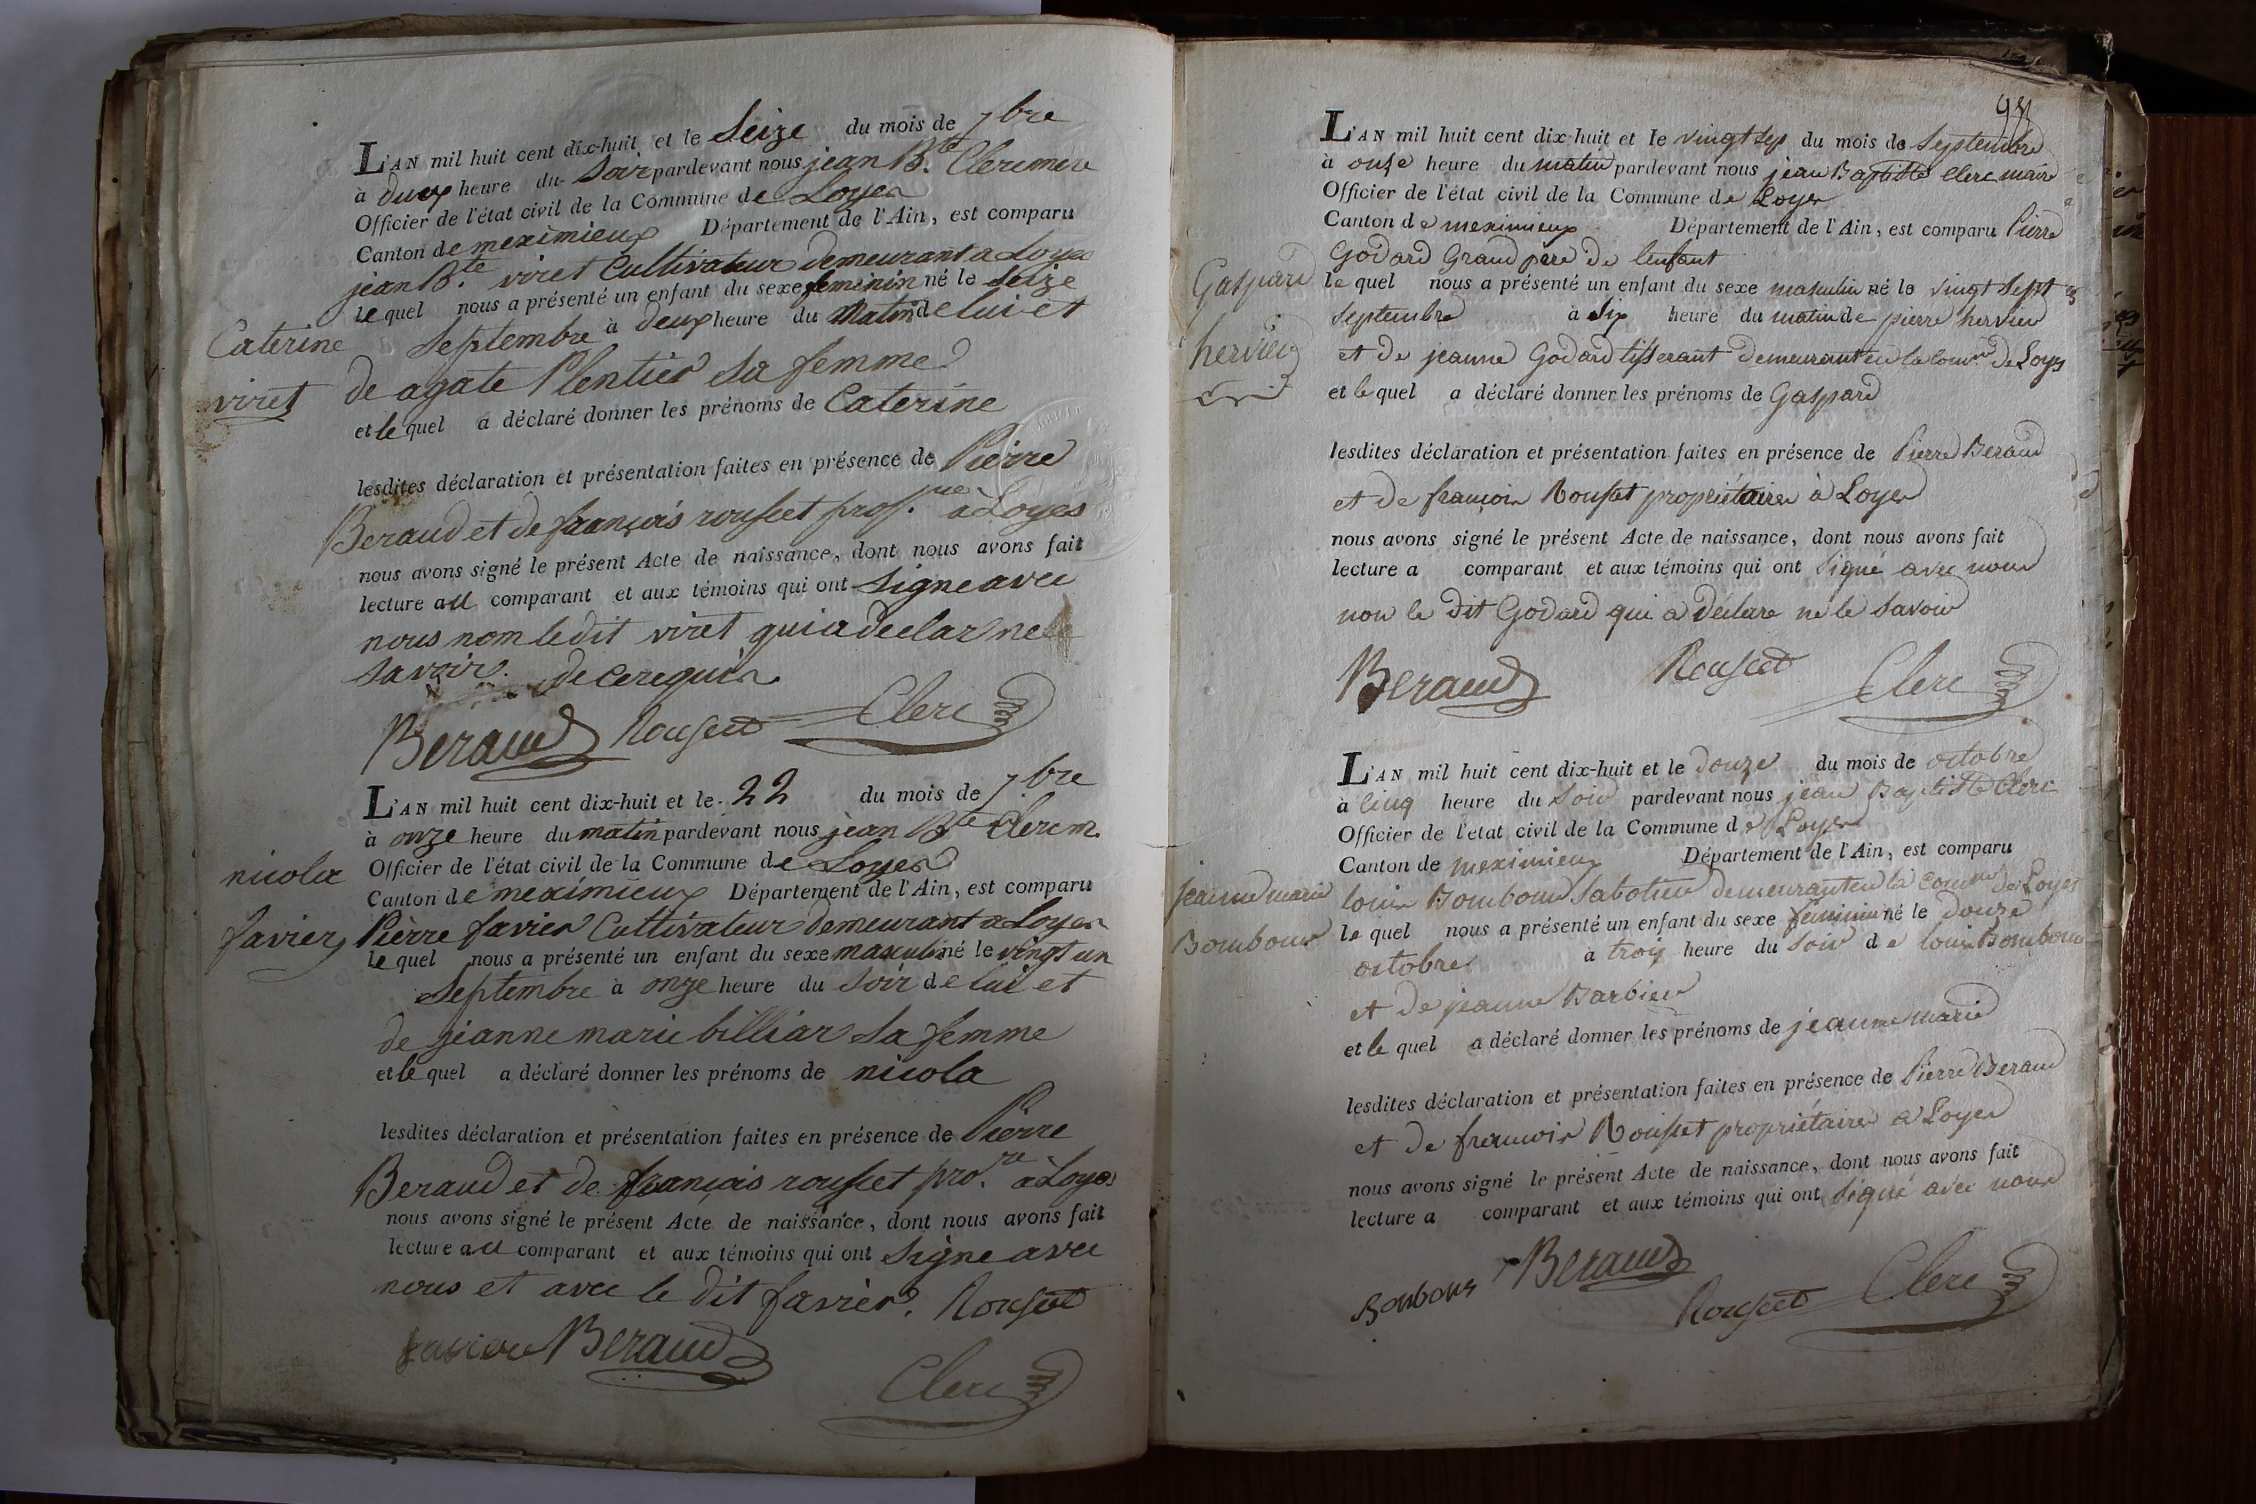 L'AN mil huit cent dix-huit et le Seize du mois de 7bre
à deux heure du Soir pardevant nous jean Bte Clerc mere
Officier de l'état civil de la Commune de Loyes
Canton de meximieux Département de l'Ain, est comparu
jean Bte viret Cultivateur demeurant a Loyes
lequel nous a présenté un enfant du sexe feminin né le Seize
Septembre à deux heure du Matin de lui et
Caterine
viret
de agate Plentier Sa femme
et le quel a déclaré donner les prénoms de Caterine
lesdites déclaration et présentation faites en présence de Pierre
Beraud et de françois rousset prop.re à Loyes
nous avons signé le présent Acte de naissance, dont nous avons fait
lecture au comparant et aux témoins qui ont Signe avec
nous nom ledit viret qui a declar ne le
Savoir. de ce requis
Beraud Rousset Clerc
L'AN mil huit cent dix-huit et le 22 du mois de 7bre
à onze heure du matin pardevant nous jean Bte Clerc m.
Officier de l'état civil de la Commune de Loyes
Canton de meximieux Département de l'Ain, est comparu
nicola
favier
Pierre favier Cultivateur demeurant a Loyes
lequel nous a présenté un enfant du sexe masculin né le vingt un
Septembre à onze heure du Soir de lui et
de jeanne marie billiar Sa femme
et le quel a déclaré donner les prénoms de nicola
lesdites déclaration et présentation faites en présence de Pierre
Beraud et de françois rousset pro.re à Loyes
nous avons signé le présent Acte de naissance, dont nous avons fait
lecture au comparant et aux témoins qui ont Signe avec
nous et avec le dit favier. Rousset
favier Beraud
Clerc
L'AN mil huit cent dix-huit et le vingt sep du mois de Septembre
à onze heure du matin pardevant nous jean Baptiste Clerc maire
Officier de l'état civil de la Commune de Loyes
Canton de meximieux Département de l'Ain, est comparu Pierre
Godard Grand pere de lenfant
Gaspard
hervieu
le quel nous a présenté un enfant du sexe masculin né le vingt Sept
Septembre à Six heure du matin de pierre hervieu
et de jeanne Godard tisserant demeurant en la comne de Loyes
et le quel a déclaré donner les prénoms de Gaspard
lesdites déclaration et présentation faites en présence de Pierre Beraud
et de françois Rousset propriétaires à Loyes
nous avons signé le présent Acte de naissance, dont nous avons fait
lecture a comparant et aux témoins qui ont Signé avec nous
non le dit Godard qui a déclare ne le Savoir
Beraud Rousset Clerc
L'AN mil huit cent dix-huit et le douze du mois de octobre
à Cinq heure du Soir pardevant nous jean Baptiste Clerc
Officier de l'etat civil de la Commune de Loyes
Canton de meximieux Département de l'Ain, est comparu
jeanne marie
Bombour
louis Bombour Sabotier demeurant en la comne de Loyes
le quel nous a présenté un enfant du sexe feminin né le douze
octobre à trois heure du Soir de louis Bombour
et de jeanne Barbier
et le quel a déclaré donner les prénoms de jeanne marie
lesdites déclaration et présentation faites en présence de Pierre Beraud
et de francois Rousset propriétaires a Loyes
nous avons signé le présent Acte de naissance, dont nous avons fait
lecture a comparant et aux témoins qui ont Signé avec nous
Bonbons Beraud
Rousset Clerc